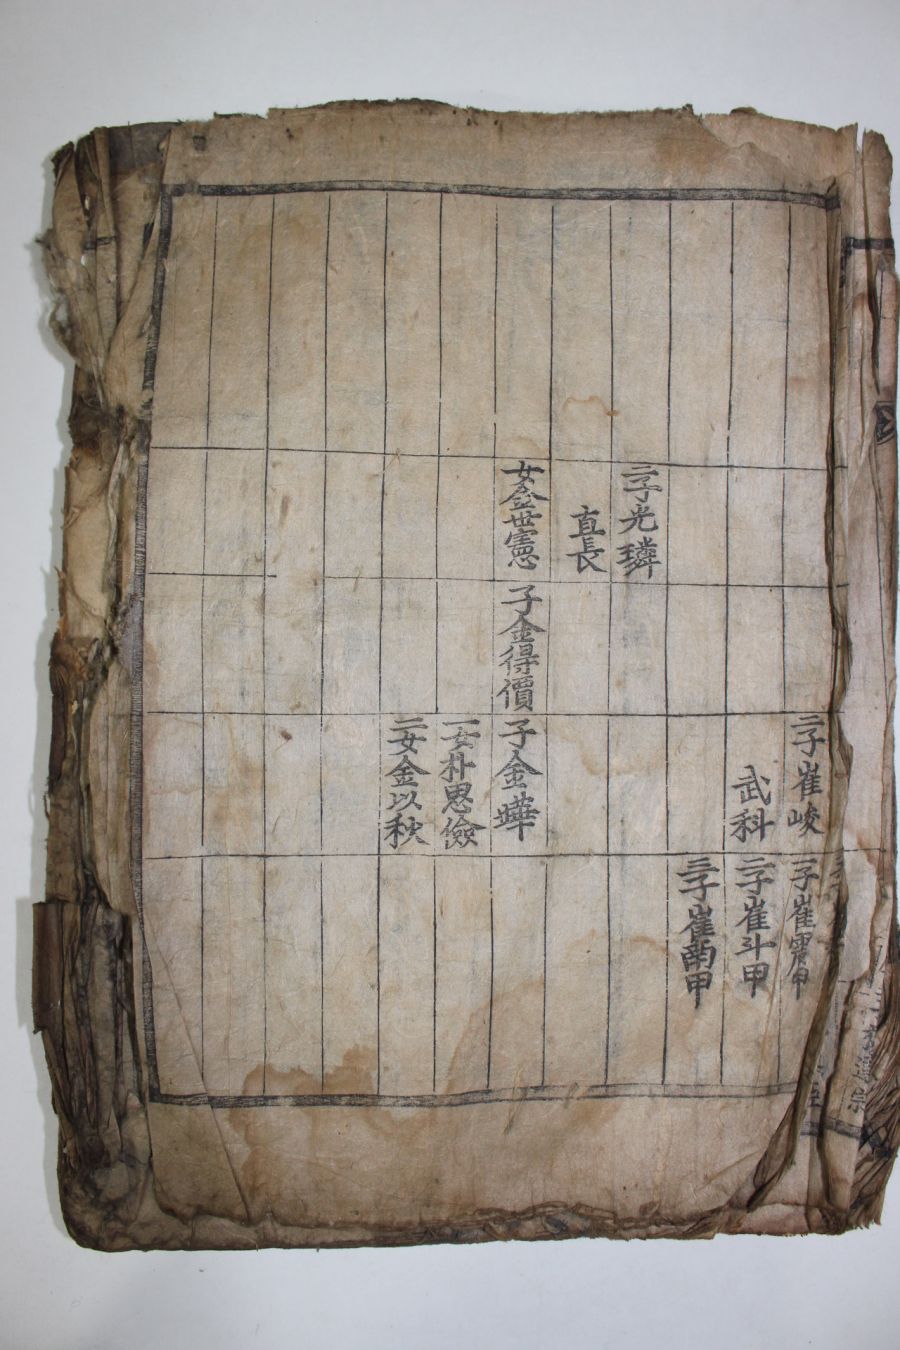 二子光璘
直長
女金世憲
子金得價
二子崔峻
武科
子金燁
一女朴思儉
二女金以秋
一子崔震甲
二子崔斗甲
三子崔蘭甲